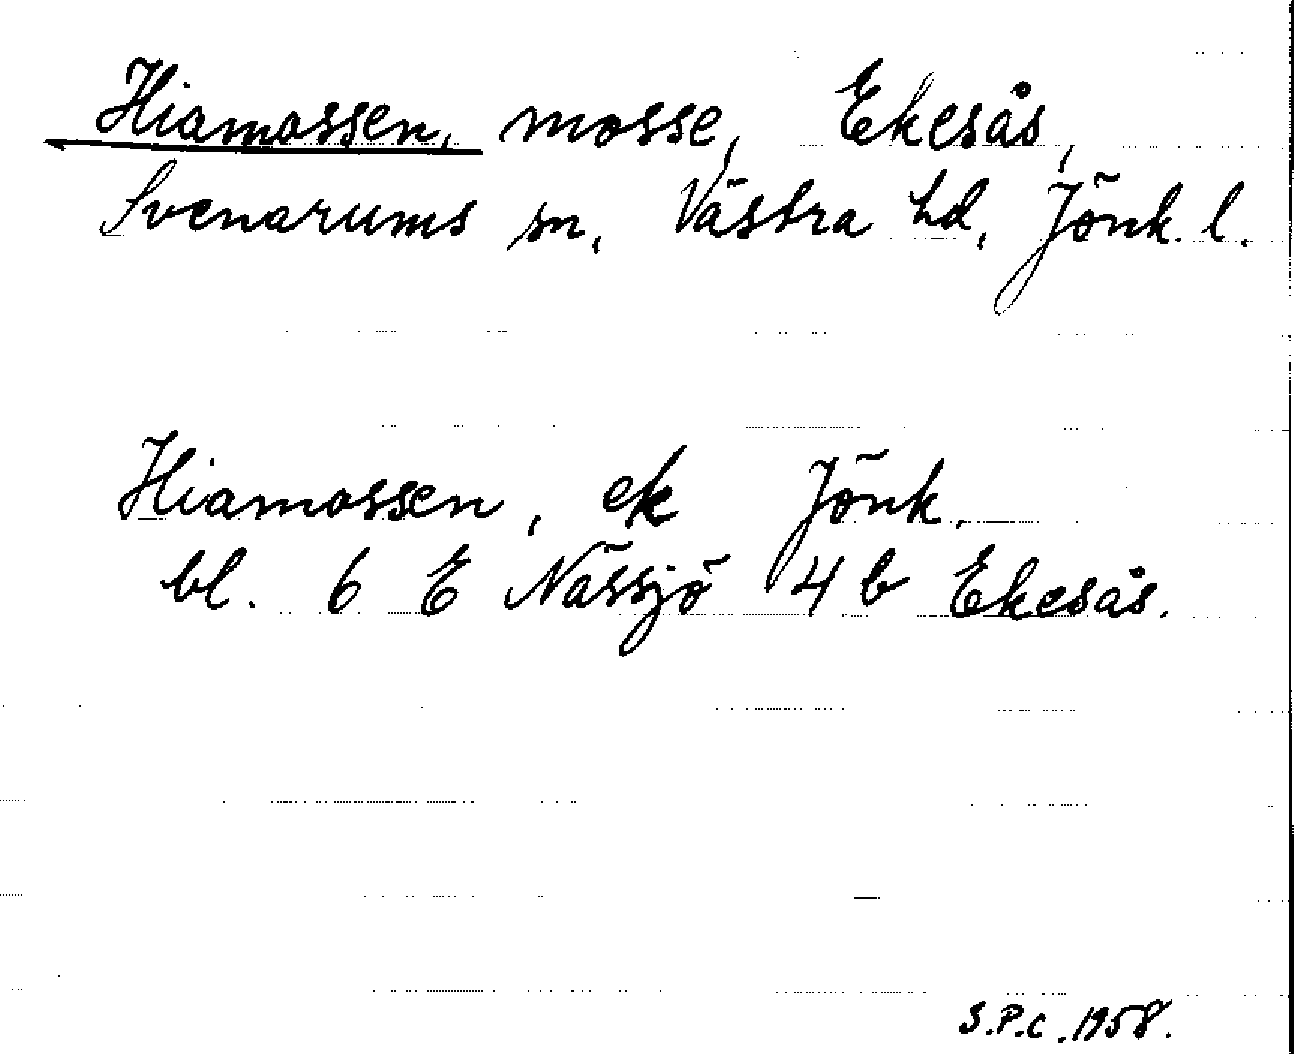 Hiamossen, mosse, Ekesås,
Svenarums sn, Västra hd, Jönk. l.
Hiamossen, ek Jönk.
bl. 6 E Nässjö 4 b Ekesås.
S.P.C. 1958.